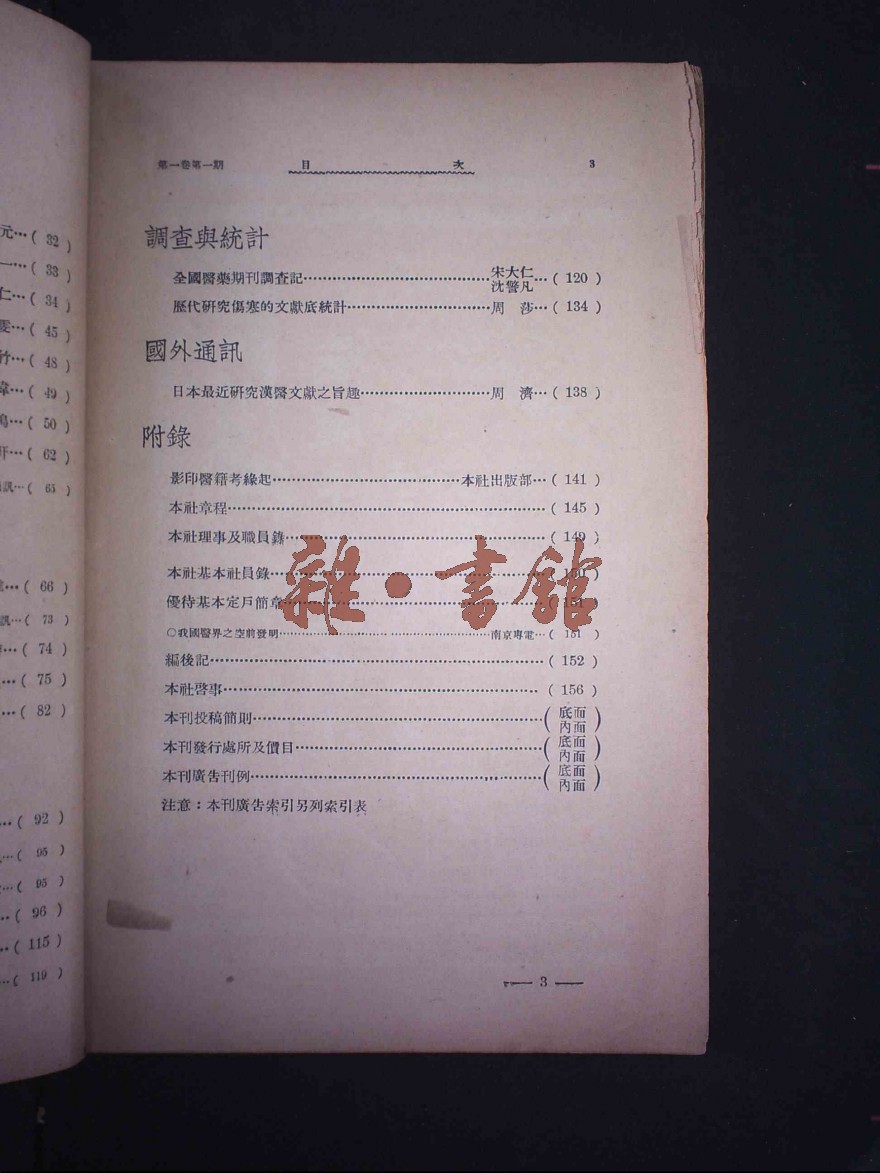 元…( 32 )
一…( 33 )
仁…( 34 )
雯…( 45 )
竹…( 48 )
…( 49 )
…( 50 )
…( 62 )
訊…( 65 )
…( 66 )
訊…( 73 )
…( 74 )
…( 75 )
…( 82 )
…( 92 )
…( 95 )
…( 95 )
…( 96 )
…( 115 )
…( 119 )
第一卷第一期 目 次 3
調查與統計
全國醫藥期刊調查記……宋大仁 沈警凡…( 120 )
歷代研究傷寒的文獻底統計……周 莎…( 134 )
國外通訊
日本最近研究漢醫文獻之旨趣……周 濟…( 138 )
附錄
影印醫籍考緣起……本社出版部…( 141 )
本社章程……( 145 )
本社理事及職員錄……( 149 )
本社基本社員錄……( 150 )
優待基本定戶簡章……( 151 )
○我國醫界之空前發明……南京專電…( 151 )
編後記……( 152 )
本社啓事……( 156 )
本刊投稿簡則……(底面內面)
本刊發行處所及價目……(底面內面)
本刊廣告刊例……(底面內面)
注意：本刊廣告索引另列索引表
— 3 —
雜·書館